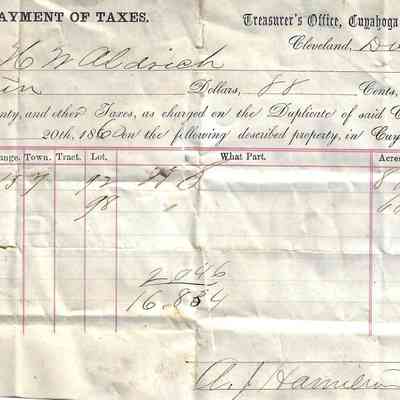 AYMENT OF TAXES. Treasurer's Office, Cuyahoga
Cleveland, D
H W Aldrich
Dollars, 88 Cents,
nty, and other Taxes, as charged on the Duplicate of said C
20th, 186 on the following described property, in Cuy
nge. Town. Tract. Lot. What Part. Acres
15 7 12
98
2046
16.834
A. J. Hamilton